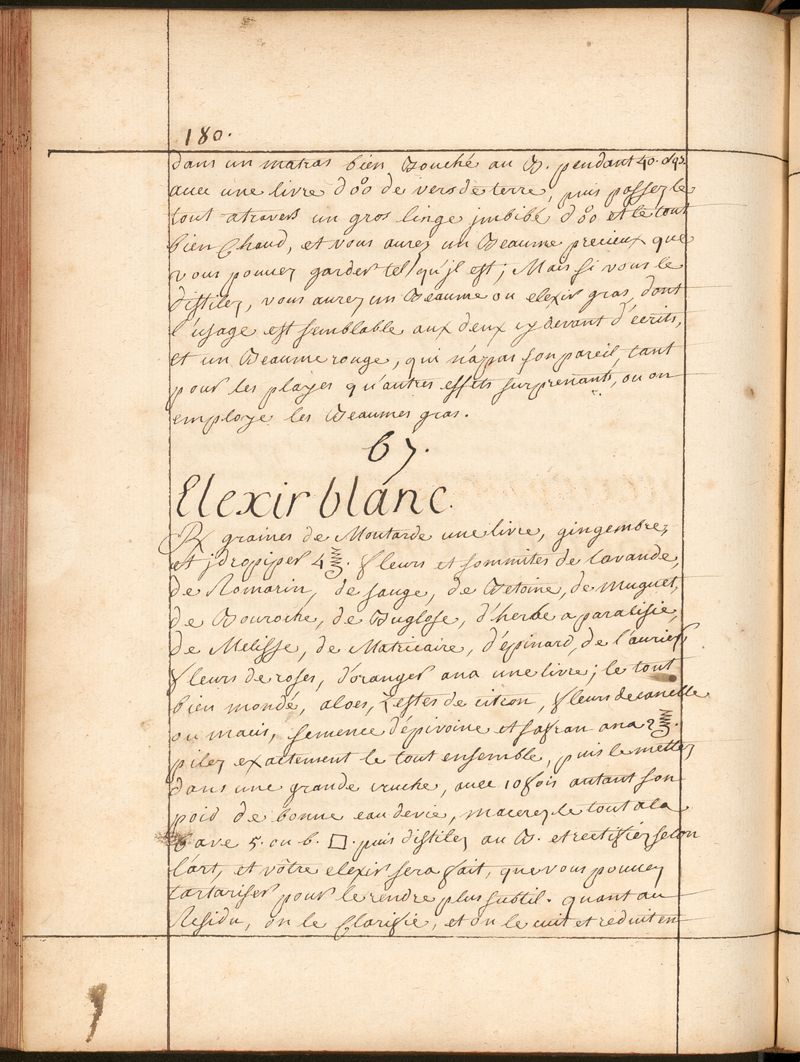 180.
dans un matras bien Bouché au B. pendant 40.
avec une livre d'oo de vers de terre, puis passez le
tout atravers un gros linge jmbibé d'oo et le tout
bien Chaud, et vous aurez un Beaume precieux que
vous pouvez garder tel qu'jl est; Mais si vous le
distilez, vous aurez un Beaume ou elexir gras, dont
l'usage est semblable aux deux cy devant d'écrits,
et un Beaume rouge, qui n'a pas son pareil, tant
pour les playes qu'autres effets surprenants, ou on
employe les Beaumes gras.
67.
Elexir blanc.
R graines de Moutarde une livre, gingembre,
et jdropiper 4 ℥. fleurs et sommites de lavande,
de Romarin, de sauge, de Betoine, de muguet,
de Bouroche, de Buglose, d'herbe a paralisie,
de Melisse, de Matricaire, d'épinard, de l'aurier
fleurs de roses, d'oranger ana une livre; le tout
bien mondé, aloes, Zestes de citron, fleurs de canelle
ou macis, semence d'épivoine et safran ana 2 ℥.
pilez exactement le tout ensemble, puis le mettez
dans une grande cruche, avec 10 fois autant son
poid de bonne eau devie, macerez le tout a la
Cave 5. ou 6. □. puis distilez au B. et rectifiez selon
l'art, et vôtre elexir sera fait, que vous pouvez
tartariser pour le rendre plus subtil. quant au
Residu, on le Clarifie, et on le cuit et reduit en